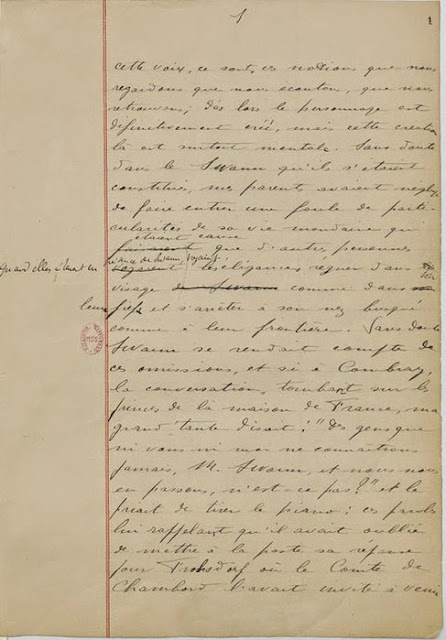 1
1
cette voix, ce sont, ces notions que nous
regardons que nous écoutons, que nous
retrouvons; Dès lors le personnage est
définitivement créé, mais cette création
là est surtout mentale. Sans doute
dans le Swann qu'ils s'étaient
constitué, mes parents avaient négligé
de faire entrer une foule de parti-
cularités de sa vie mondaine qui
étaient cause
que d'autres personnes
quand elles étaient en
présence de Swann, voyaient
les élégances régner dans son
visage de Swann comme dans
leur fief et s'arrêter à son nez busqué
comme à leur frontière. Sans doute
Swann se rendait compte de
ces omissions, et si à Combray,
la conversation, tombant sur les
princes de la maison de France, ma
grand'tante disait: "Des gens que
ni vous ni moi ne connaîtrons
jamais, M. Swann, et nous nous
en passons, n'est-ce pas?" et le
priait de tirer le piano; ces paroles
lui rappelant qu'il avait oublié
de mettre à la poste sa réponse
pour Frohsdorf où le Comte de
Chambord l'avait invité à venir